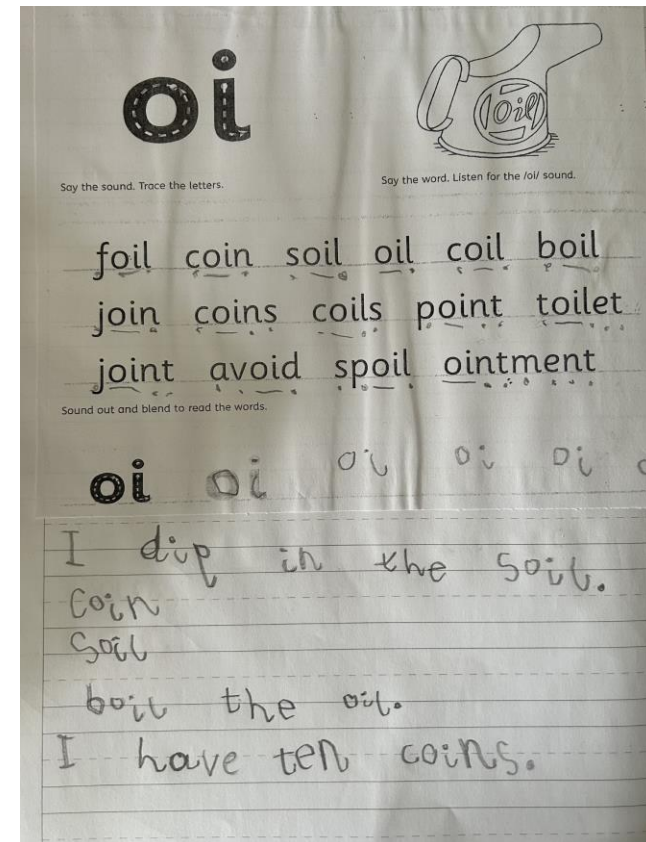 oi
oil
Say the sound. Trace the letters.
Say the word. Listen for the /oi/ sound.
foil coin soil oil coil boil
join coins coils point toilet
joint avoid spoil ointment
Sound out and blend to read the words.
oi oi oi oi oi
I dip in the soil.
Coin
Soil
boil the oil.
I have ten coins.